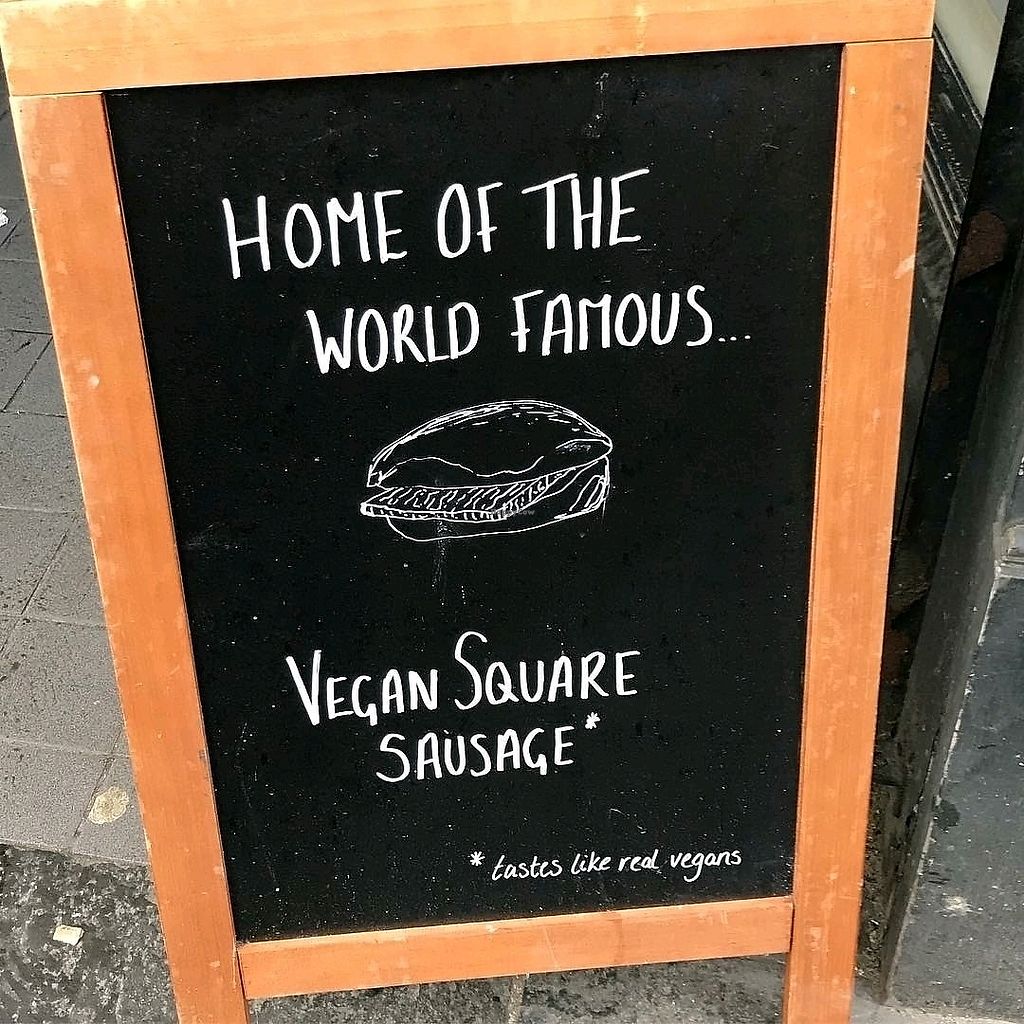 HOME OF THE
WORLD FAMOUS...
VEGAN SQUARE
SAUSAGE*
* tastes like real vegans